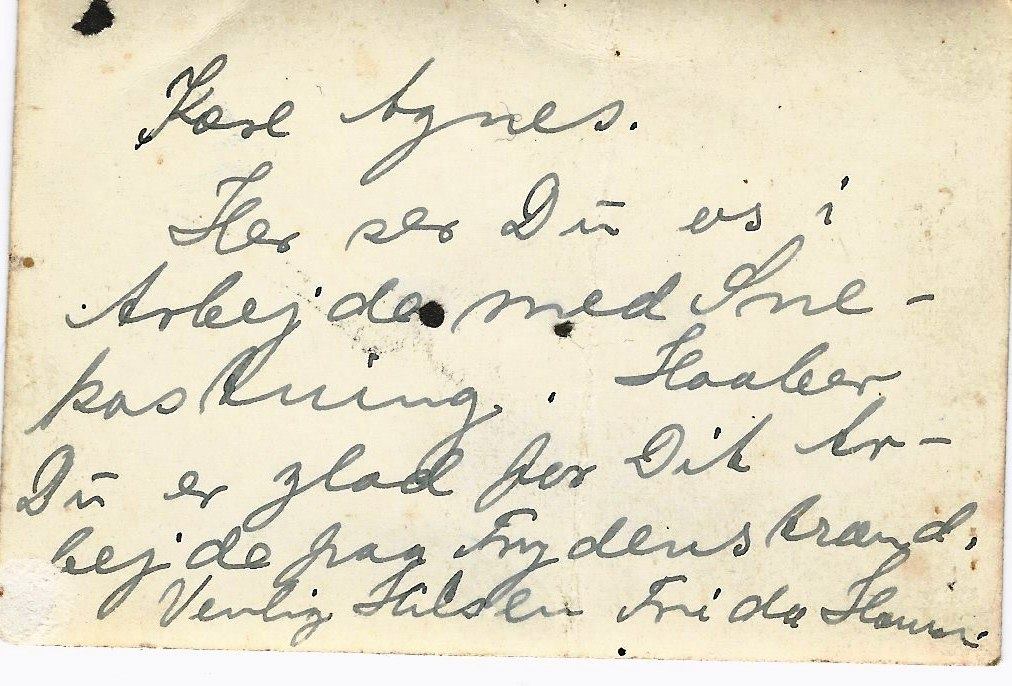 Kære Agnes.
Her ser Du os i
Arbejde med Sne-
kastning. Haaber
Du er glad for Dit Ar-
bejde paa Frydenstrand.
Venlig Hilsen Frida